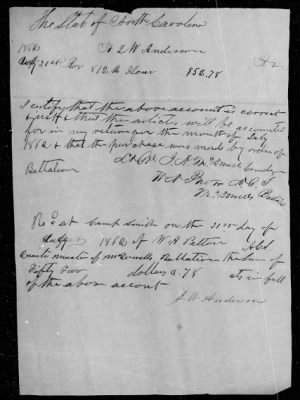 The State of North Carolina
1862 To J W Anderson Dr
July 31st For 812 lb Flour $52.78
I certify that the above account is correct
& just & that the articles will be accounted
for in my return for the month of July
1862 & that the purchase was made by order of
Lt Col
Battalion
Rec at Camp Smith on the 31st day of
1862 of W A Patton
quarter master of Battalion the sum of
Fifty Two dollars & 78 cts in full
of the above account
J W Anderson